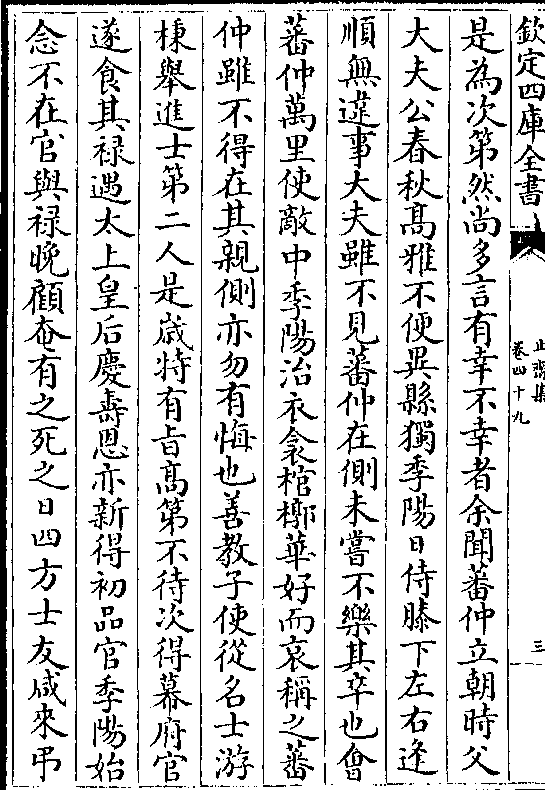 欽定四庫全書
止齋集
卷四十九
三
是為次第然尚多言有幸不幸者余聞蕃仲立朝時父
大夫公春秋髙雅不便異縣獨季陽日侍膝下左右逢
順無違事大夫雖不見蕃仲在側未嘗不樂其卒也㑹
蕃仲萬里使敵中季陽治衣衾棺槨華好而哀稱之蕃
仲雖不得在其親側亦勿有悔也善教子使從名士游
棟舉進士第二人是嵗特有㫖髙第不待次得幕府官
遂食其禄遇太上皇后慶壽恩亦新得初品官季陽始
念不在官與禄晚顧奄有之死之日四方士友咸來弔